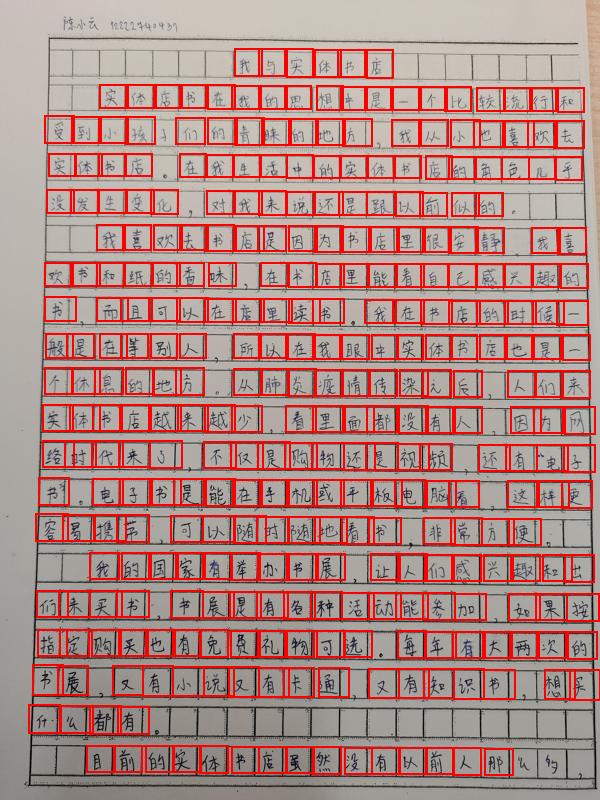 陈小云 12222740439
我与实体书店
实体店书在我的思想中是一个比较流行和
受到小孩子们的青睐的地方，我从小也喜欢去
实体书店。在我生活中的实体书店的角色几乎
没发生变化，对我来说还是跟以前似的。
我喜欢去书店是因为书店里很安静。我喜
欢书和纸的香味，在书店里能看自己感兴趣的
书，而且可以在店里读书。我在书店的时候一
般是在等别人，所以在我眼中实体书店也是一
个休息的地方。从肺炎疫情传染元后，人们来
实体书店越来越少，看里面都没有人，因为网
络时代来了，不仅是购物还是视频，还有“电子
书”。电子书是能在手机或平板电脑看，这样更
容易携带，可以随时随地看书，非常方便。
我的国家有举办书展，让人们感兴趣和出
们来买书，书展是有各种活动能参加，如果按
指定购买也有免费礼物可选。每年有大两次的
书展，又有小说又有卡通，又有知识书，想买
什么都有。
目前的实体书店虽然没有以前人那么多，